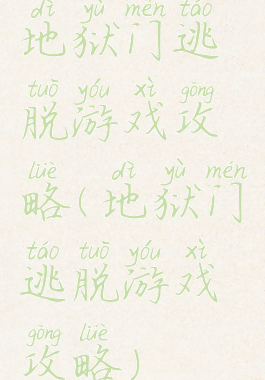 dì yù mén táo
地狱门逃
tuō yóu xì gōng
脱游戏攻
lüè dì yù mén
略(地狱门
táo tuō yóu xì
逃脱游戏
gōng lüè
攻略)